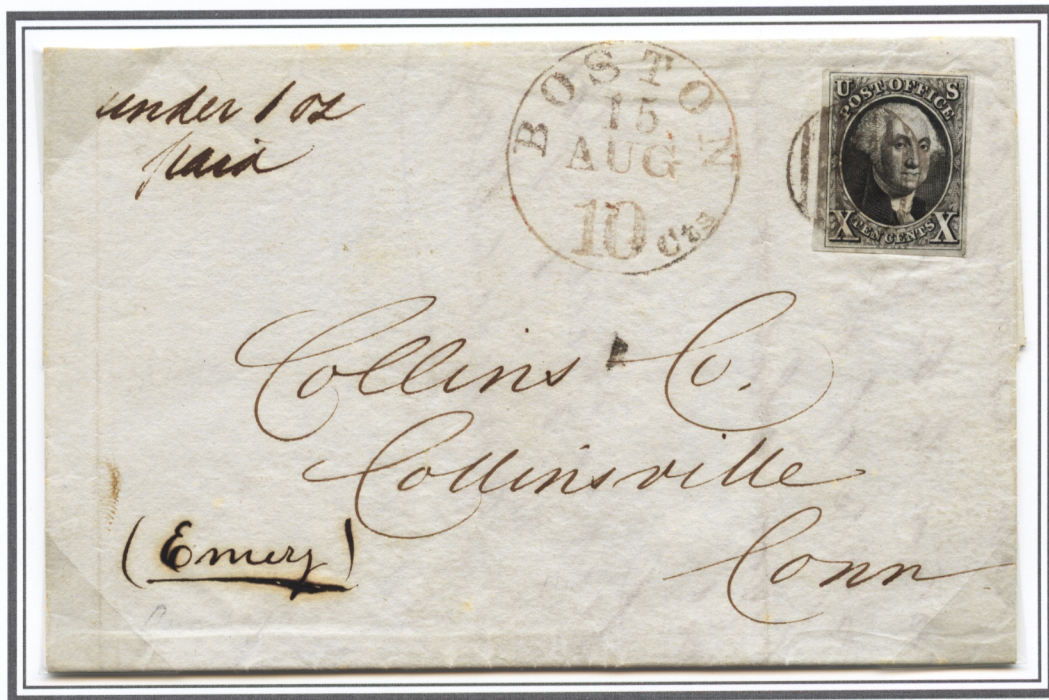 under 1 oz
paid
BOSTON
15
AUG
10 Cts
U S
POST OFFICE
X TEN CENTS X
Collins Co.
Collinsville
(Emery)
Conn